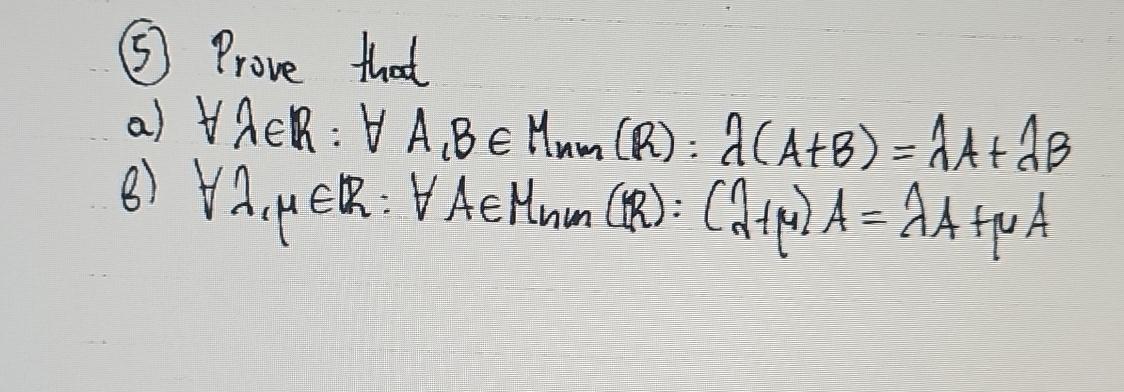 ⑤ Prove that
a) ∀ λ∈ℝ : ∀ A,B ∈ Mnm (ℝ) : λ(A+B) = λA + λB
б) ∀ λ,μ ∈ℝ : ∀ A∈Mnm (ℝ) : (λ+μ) A = λA + μA